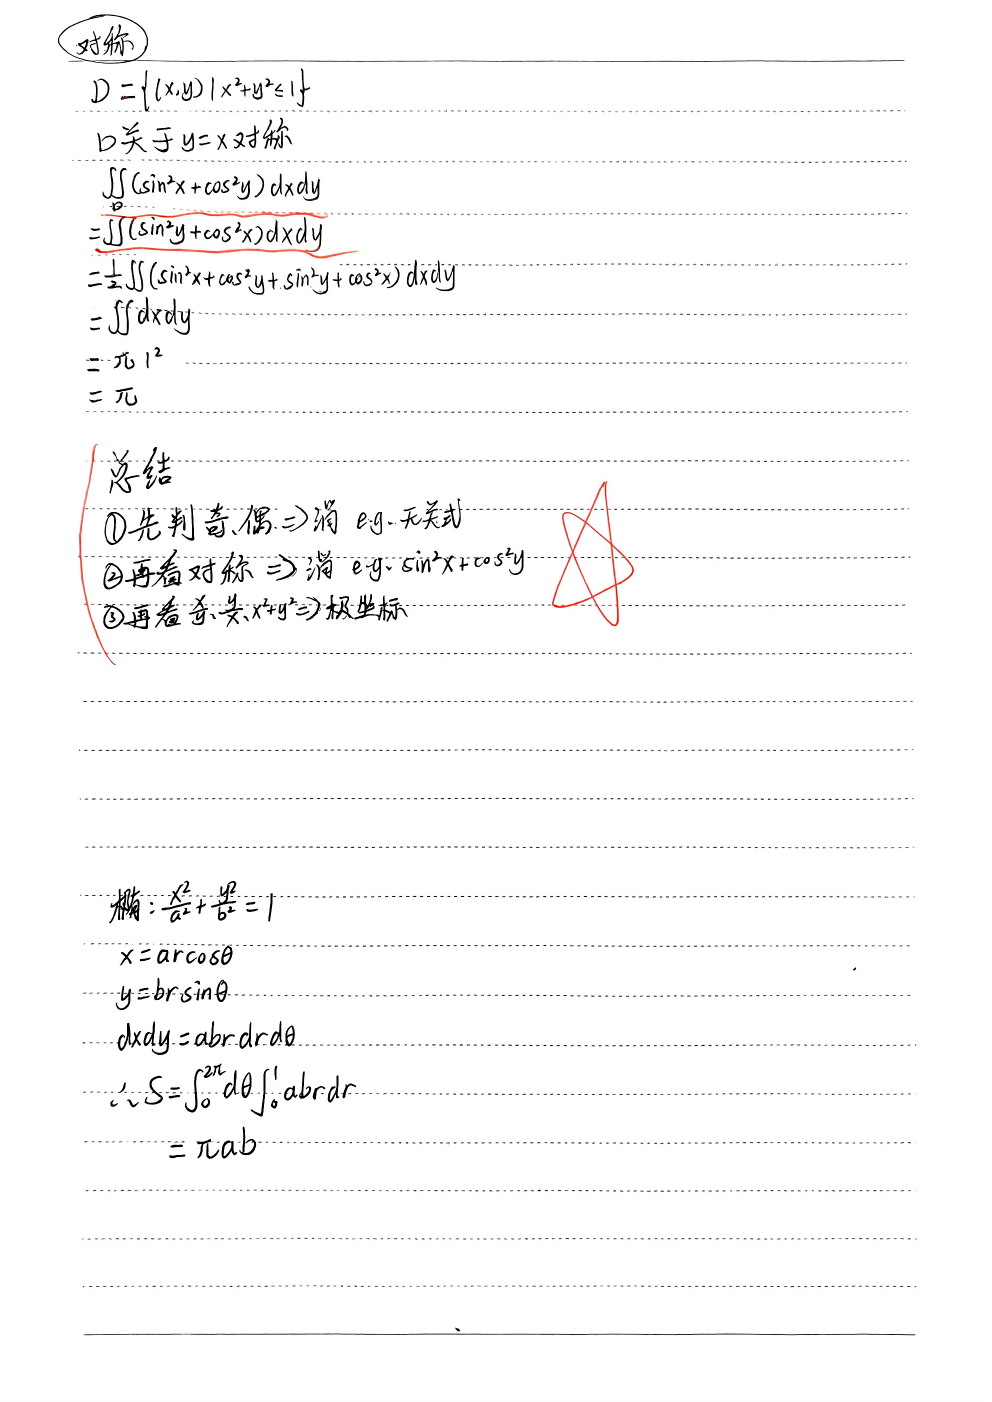 对称
D={(x,y)|x²+y²≤1}
D关于y=x对称
∬_D(sin²x+cos²y)dxdy
=∬(sin²y+cos²x)dxdy
=½∬(sin²x+cos²y+sin²y+cos²x)dxdy
=∬dxdy
=π1²
=π
总结
①先判奇、偶⇒消 e.g.无关式
②再看对称⇒消 e.g. sin²x+cos²y
③再看x/y、y/x、x²+y²⇒极坐标
椭:x²/a²+y²/b²=1
x=arcosθ
y=brsinθ
dxdy=abrdrdθ
∴S=∫₀^{2π}dθ∫₀¹abrdr
=πab